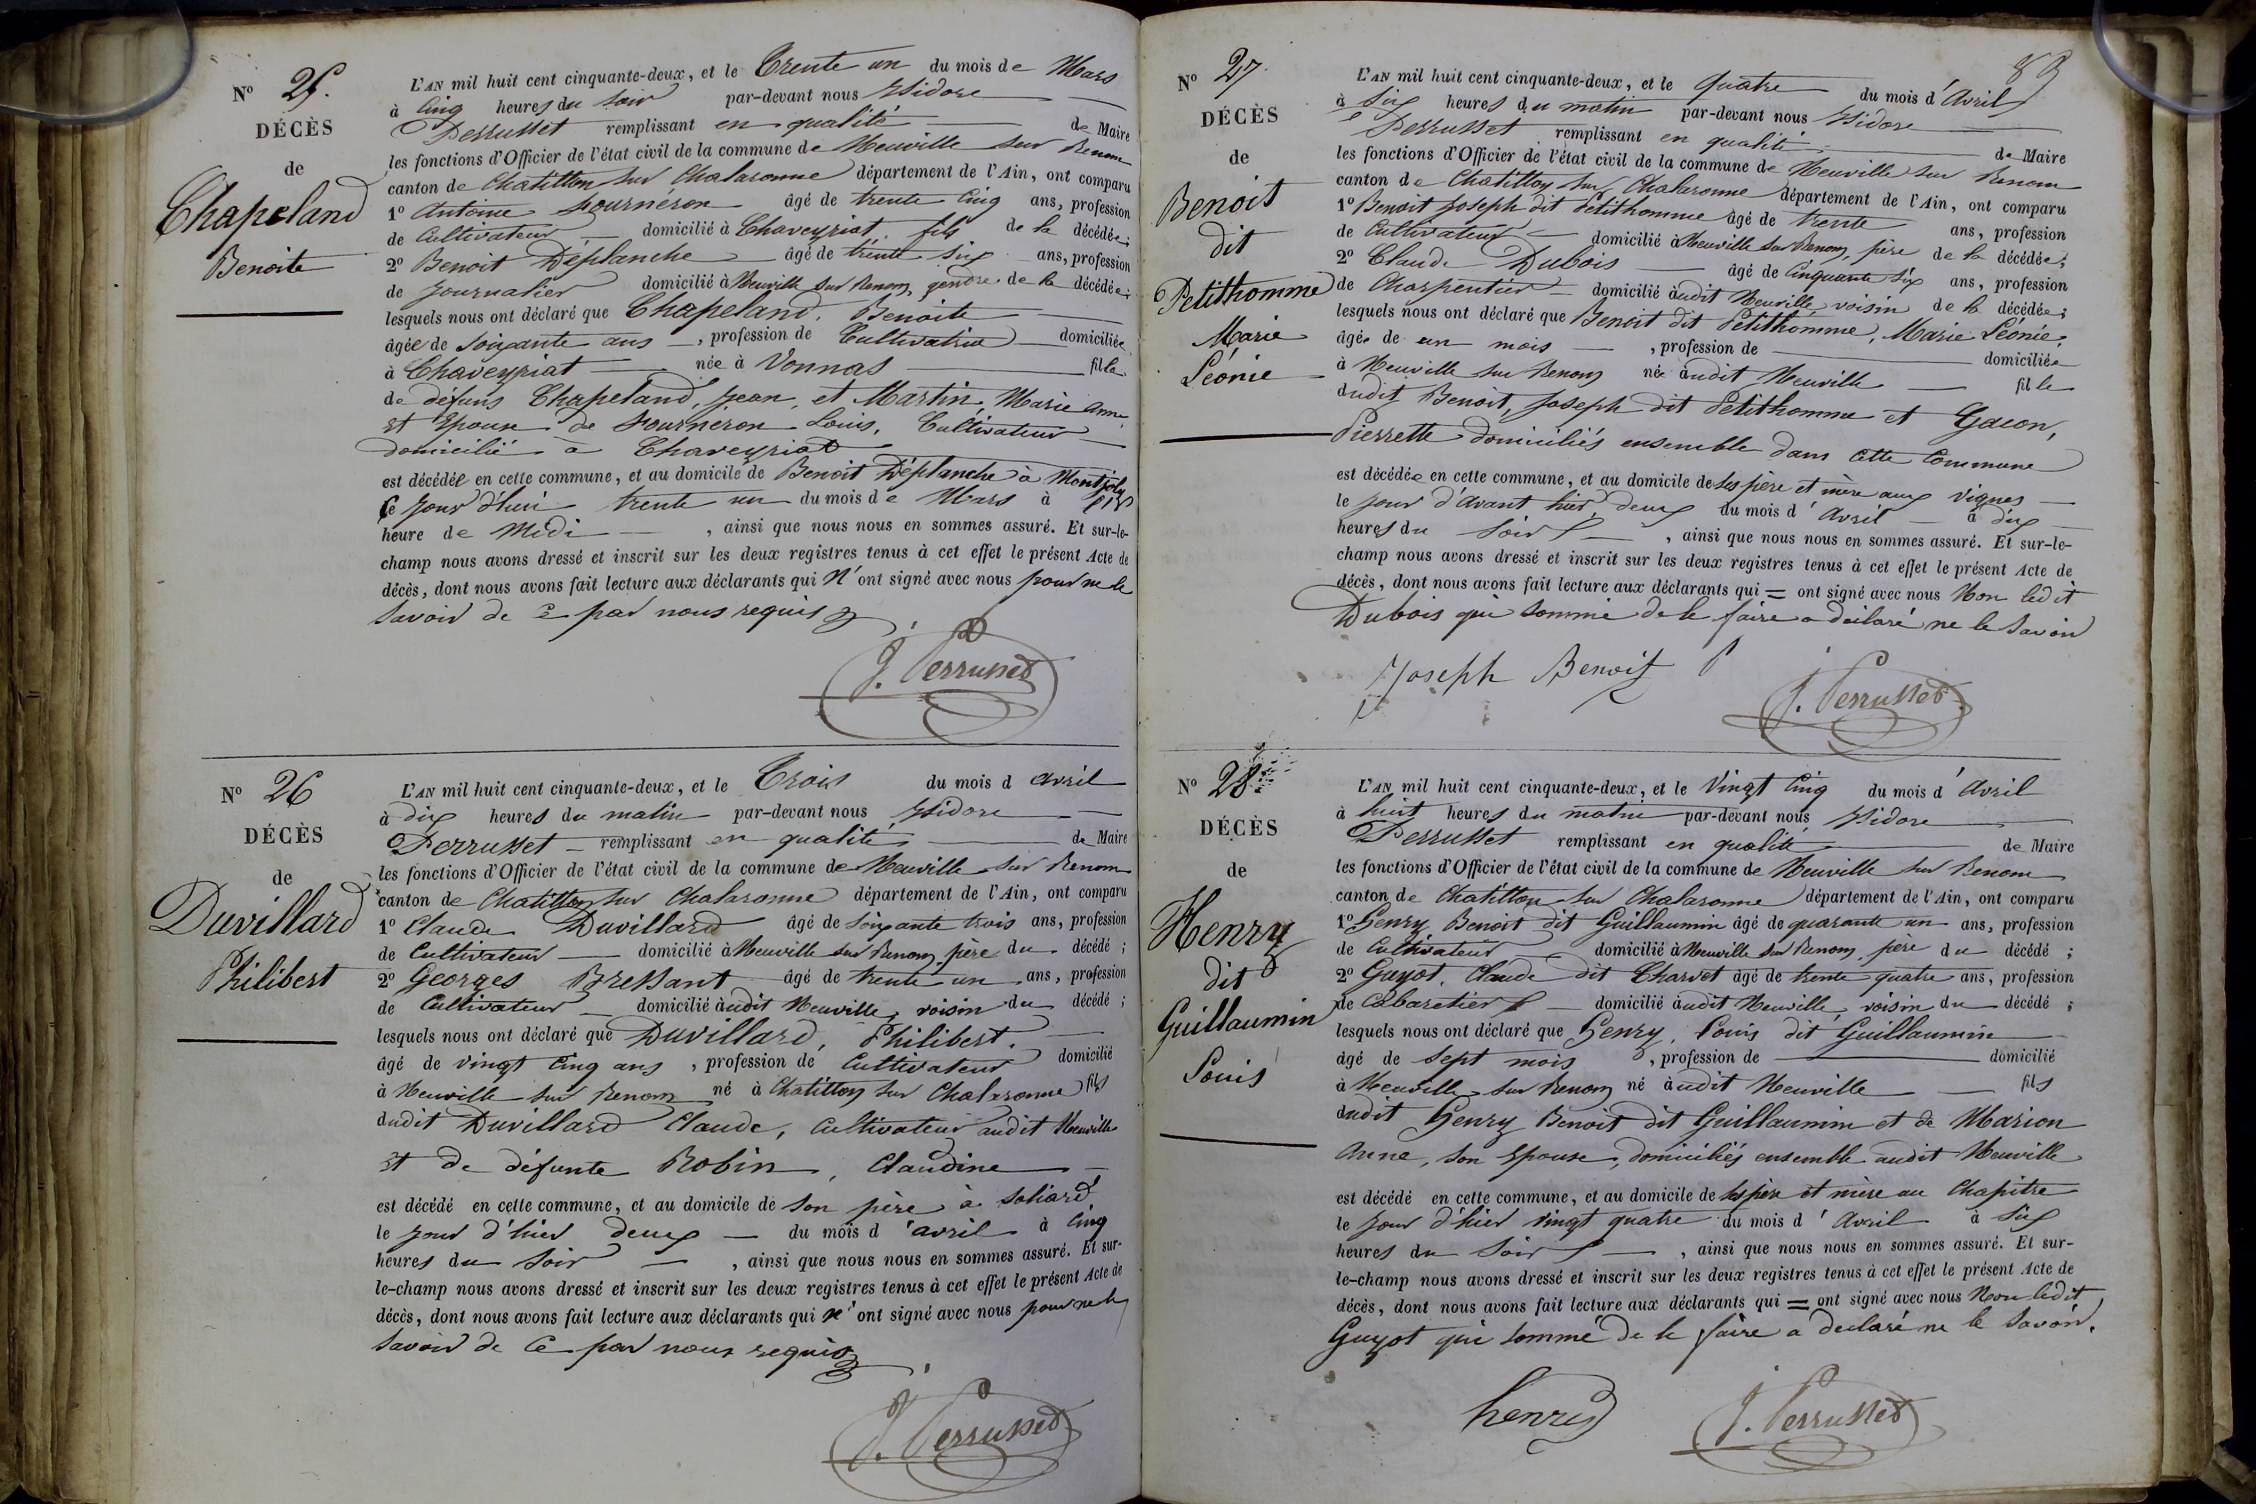 N° 25.
DÉCÈS
de
Chapeland
Benoite
L'AN mil huit cent cinquante-deux, et le Trente un du mois de Mars
à Cinq heures du soir par-devant nous Isidore
Perrusset remplissant en qualité de Maire
les fonctions d'Officier de l'état civil de la commune de Neuville sur Renom
canton de Chatillon sur Chalaronne département de l'Ain, ont comparu
1° Antoine Fourneron âgé de trente Cinq ans, profession
de Cultivateur domicilié à Chaveyriat fils de la décédée;
2° Benoit Déplanche âgé de trente six ans, profession
de Journalier domicilié à Neuville sur Renom gendre de la décédée;
lesquels nous ont déclaré que Chapeland, Benoite
âgée de soixante ans, profession de Cultivatrice domiciliée
à Chaveyriat née à Vonnas fille
de défuns Chapeland, Jean, et Martin, Marie Anne
et Epouse de Fourneron Louis, Cultivateur
domicilié à Chaveyriat
est décédée en cette commune, et au domicile de Benoit Déplanche à Montjoly
Ce jour d'hui trente un du mois de Mars à
heure de Midi, ainsi que nous nous en sommes assuré. Et sur-le-
champ nous avons dressé et inscrit sur les deux registres tenus à cet effet le présent Acte de
décès, dont nous avons fait lecture aux déclarants qui N'ont signé avec nous pour ne le
savoir de ce par nous requis
J. Perrusset
N° 26
DÉCÈS
de
Duvillard
Philibert
L'AN mil huit cent cinquante-deux, et le Trois du mois d avril
à dix heures du matin par-devant nous Isidore
Perrusset remplissant en qualité de Maire
les fonctions d'Officier de l'état civil de la commune de Neuville sur Renom
canton de Chatillon sur Chalaronne département de l'Ain, ont comparu
1° Claude Duvillard âgé de soixante trois ans, profession
de Cultivateur domicilié à Neuville sur Renom père du décédé;
2° Georges Bressant âgé de trente un ans, profession
de Cultivateur domicilié audit Neuville, voisin du décédé;
lesquels nous ont déclaré que Duvillard, Philibert.
âgé de vingt Cinq ans, profession de Cultivateur domicilié
à Neuville sur Renom né à Chatillon sur Chalaronne fils
dudit Duvillard Claude, Cultivateur audit Neuville
et de défunte Robin, Claudine
est décédé en cette commune, et au domicile de son père à Soliard
le jour d'hier deux du mois d'avril à Cinq
heures du soir, ainsi que nous nous en sommes assuré. Et sur-
le-champ nous avons dressé et inscrit sur les deux registres tenus à cet effet le présent Acte de
décès, dont nous avons fait lecture aux déclarants qui n'ont signé avec nous pour ne le
savoir de ce par nous requis
J. Perrusset
83
N° 27.
DÉCÈS
de
Benoit
dit
Petithomme
Marie
Léonie
L'AN mil huit cent cinquante-deux, et le quatre du mois d'Avril
à six heures du matin par-devant nous Isidore
Perrusset remplissant en qualité de Maire
les fonctions d'Officier de l'état civil de la commune de Neuville sur Renom
canton de Chatillon sur Chalaronne département de l'Ain, ont comparu
1° Benoit Joseph dit Petithomme âgé de trente ans, profession
de Cultivateur domicilié à Neuville sur Renom, père de la décédée;
2° Claude Dubois âgé de Cinquante six ans, profession
de Charpentier domicilié audit Neuville, voisin de la décédée;
lesquels nous ont déclaré que Benoit dit Petithomme, Marie Léonie,
âgée de un mois, profession de domiciliée
à Neuville sur Renom née audit Neuville fille
dudit Benoit, Joseph dit Petithomme et Gacon,
Pierrette domiciliés ensemble dans cette Commune
est décédée en cette commune, et au domicile de ses père et mère aux Vignes
le jour d'avant hier, deux du mois d'Avril à dix
heures du soir, ainsi que nous nous en sommes assuré. Et sur-le-
champ nous avons dressé et inscrit sur les deux registres tenus à cet effet le présent Acte de
décès, dont nous avons fait lecture aux déclarants qui = ont signé avec nous Non ledit
Dubois qui sommé de le faire a déclaré ne le savoir
Joseph Benoit J. Perrusset
N° 28
DÉCÈS
de
Henry
dit
Guillaumin
Louis
L'AN mil huit cent cinquante-deux, et le Vingt Cinq du mois d'Avril
à huit heures du matin par-devant nous Isidore
Perrusset remplissant en qualité de Maire
les fonctions d'Officier de l'état civil de la commune de Neuville sur Renom
canton de Chatillon sur Chalaronne département de l'Ain, ont comparu
1° Henry Benoit dit Guillaumin âgé de quarante un ans, profession
de Cultivateur domicilié à Neuville sur Renom, père du décédé;
2° Guyot, Claude dit Charvet âgé de trente quatre ans, profession
de Cabaretier domicilié audit Neuville, voisin du décédé;
lesquels nous ont déclaré que Henry, Louis dit Guillaumin
âgé de sept mois, profession de domicilié
à Neuville sur Renom né audit Neuville fils
dudit Henry Benoit dit Guillaumin et de Marion
Anne, son Epouse, domiciliés ensemble audit Neuville
est décédé en cette commune, et au domicile de ses père et mère au Chapitre
le jour d'hier vingt quatre du mois d'Avril à six
heures du soir, ainsi que nous nous en sommes assuré. Et sur-
le-champ nous avons dressé et inscrit sur les deux registres tenus à cet effet le présent Acte de
décès, dont nous avons fait lecture aux déclarants qui = ont signé avec nous Non ledit
Guyot qui sommé de le faire a déclaré ne le savoir.
henry J. Perrusset